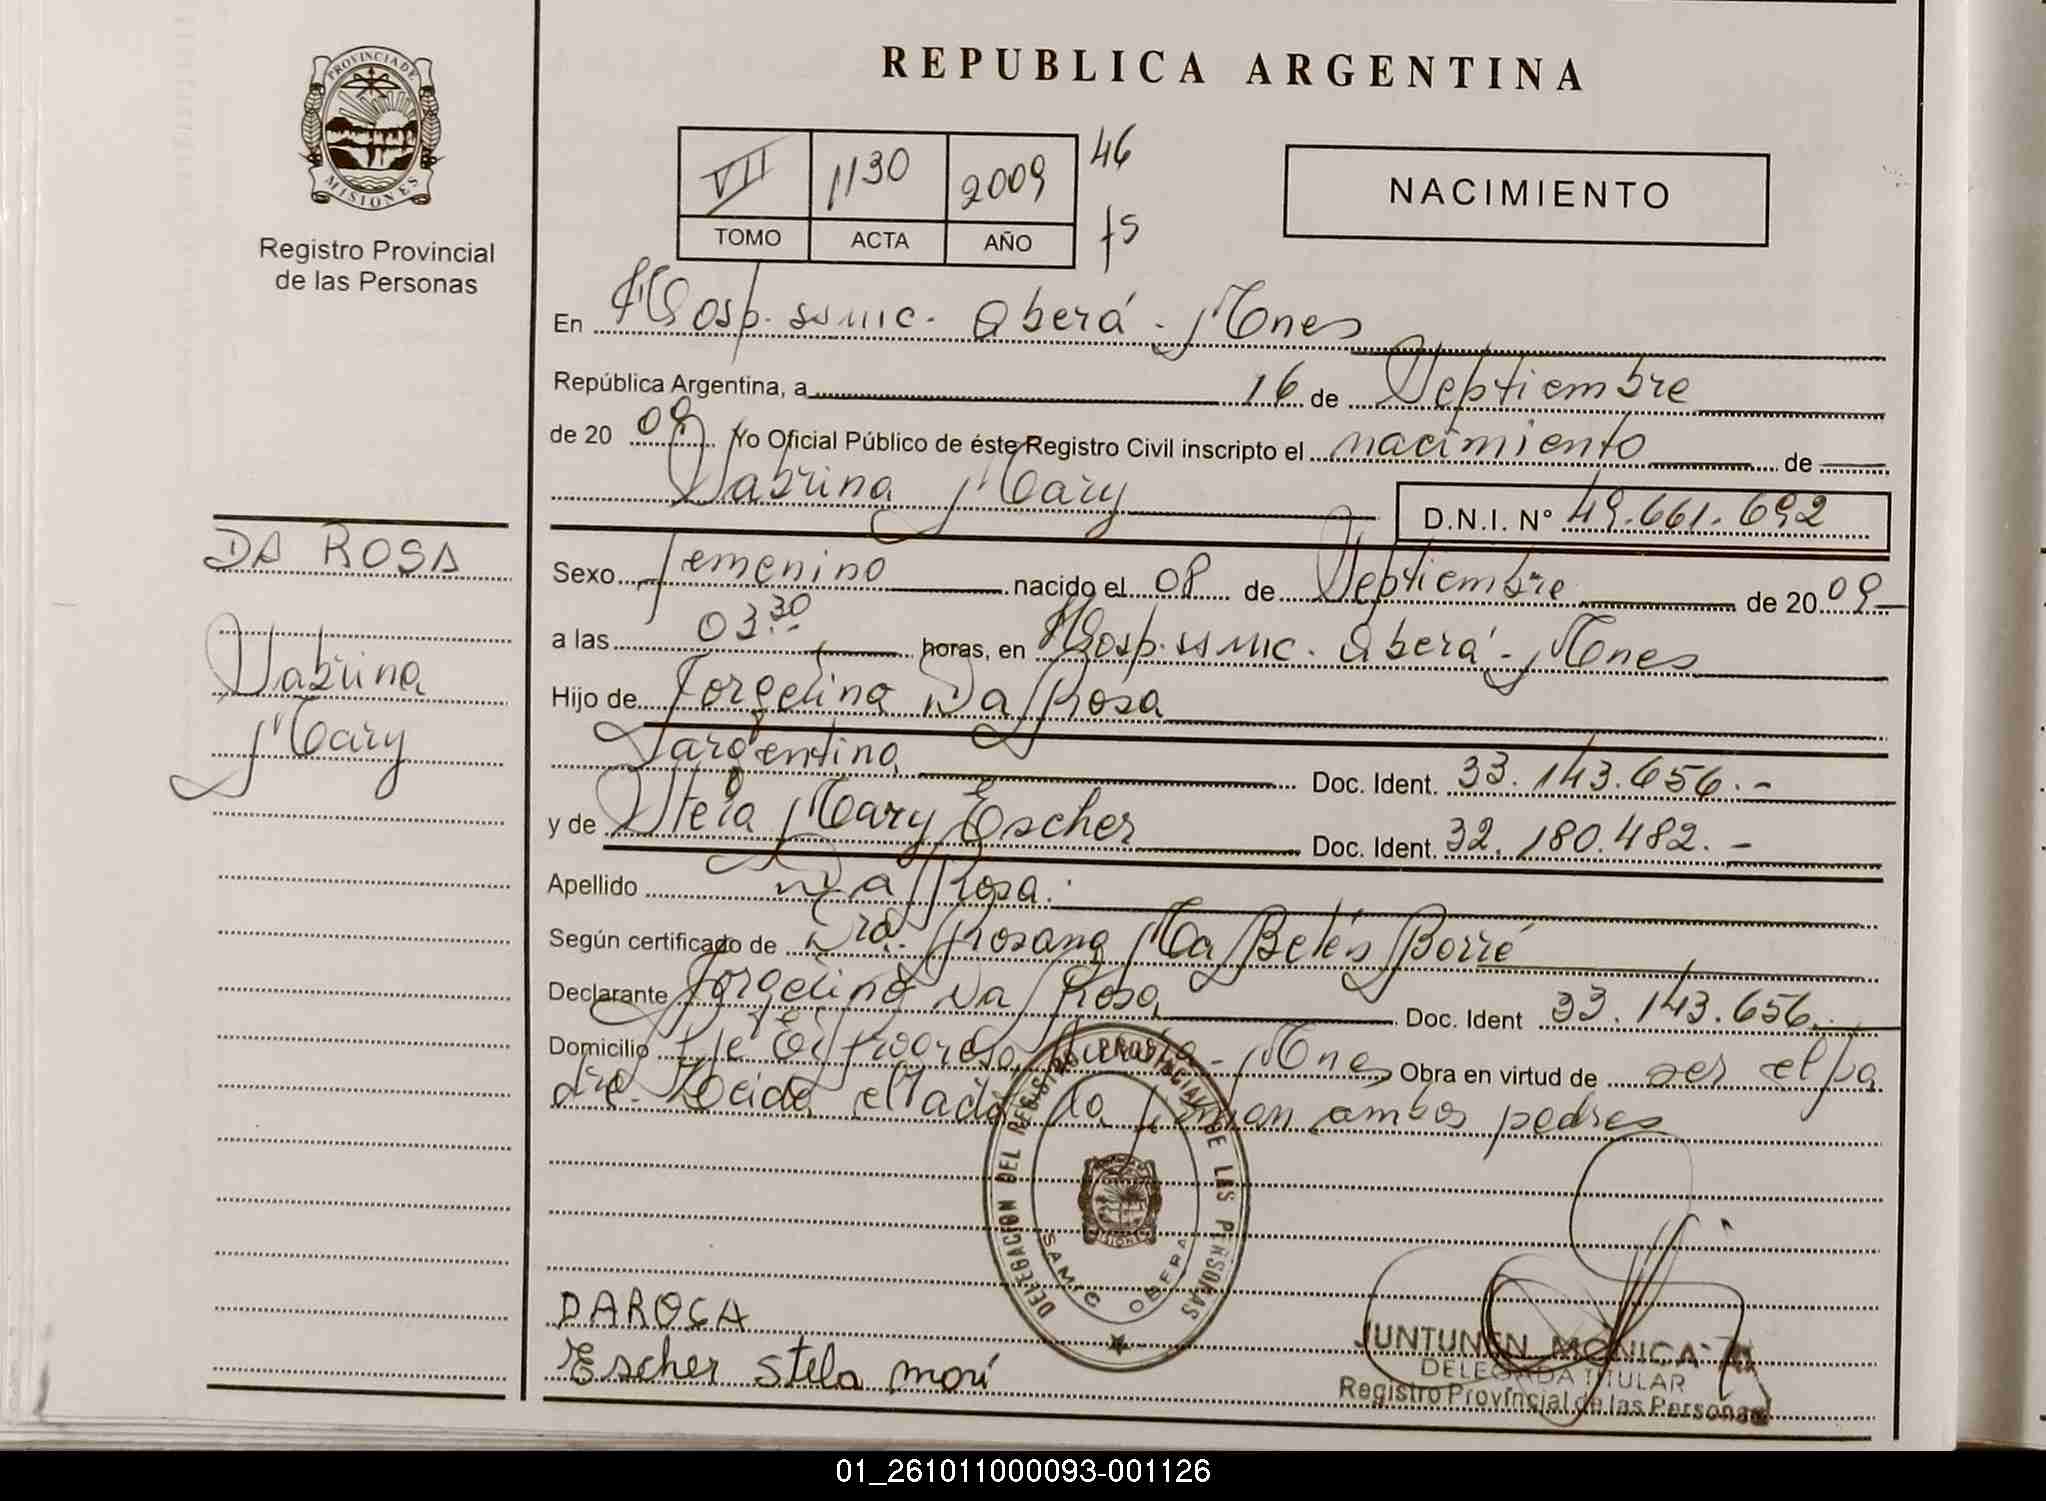 PROVINCIA DE
MISIONES
Registro Provincial
de las Personas
DA ROSA
Sabrina
Mary
REPUBLICA ARGENTINA
VII 1130 2009 46
TOMO ACTA AÑO fs
NACIMIENTO
En Hosp. ssmic. Oberá - Mnes
República Argentina, a 16 de Septiembre
de 20 09 Yo Oficial Público de éste Registro Civil inscripto el nacimiento de
Sabrina Mary D.N.I. N° 49.661.692
Sexo femenino nacido el 08 de Septiembre de 20 09
a las 03.30 horas, en Hosp. ssmic. Oberá - Mnes
Hijo de Jorgelino Da Rosa
argentino Doc. Ident. 33.143.656.-
y de Stela Mary Escher Doc. Ident. 32.180.482.-
Apellido Da Rosa.
Según certificado de Dra. Rosana Ma Belés Borré
Declarante Jorgelino Da Rosa Doc. Ident 33.143.656.
Domicilio El Progreso Mnes Obra en virtud de ser el pa
dre. Leida el acta la firman ambos padres
DELEGACION DEL REGISTRO PROVINCIAL DE LAS PERSONAS
SAMIC OBERA
DAROSA
Escher Stela mari
JUNTUNEN MONICA
DELEGADA TITULAR
Registro Provincial de las Personas
01_261011000093-001126